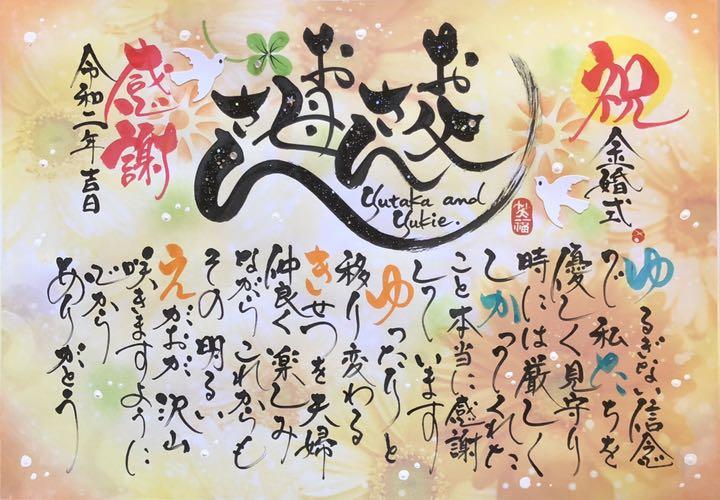 祝
金婚式
お父さん
お母さん
Yutaka and
Yukie.
笑福
感謝
令和二年吉日
ゆるぎない信念
で私たちを
優しく見守り
時には厳しく
しかってくれた
こと本当に感謝
しています
ゆったりと
移り変わる
きせつを夫婦
仲良く楽しみ
ながらこれからも
その明るい
えがおが沢山
咲きますように
心から
ありがとう